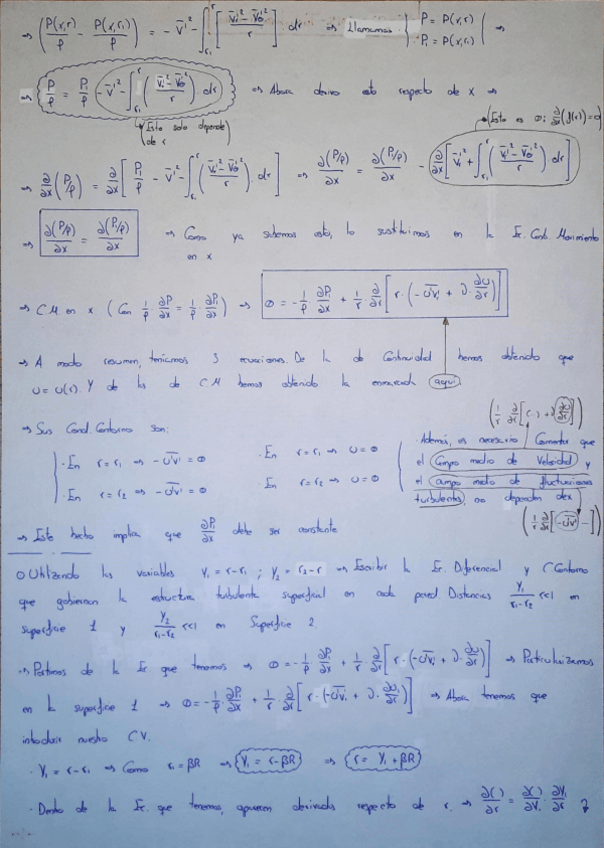 ⇒ (P(x,r)/ρ - P(x,r₁)/ρ) = - v̄'² - ∫_{r₁}^{r} [ (v̄'² - v̄θ'²)/r ] dr ⇒ Llamamos { P = P(x,r) ; P₁ = P(x,r₁) } ⇒
⇒ P/ρ = P₁/ρ - v̄'² - ∫_{r₁}^{r} ( (v̄'² - v̄θ'²)/r ) dr ⇒ Ahora derivo esto respecto de x ⇒
(Esto solo depende de r)
(Esto es 0; ∂/∂x (f(r)) = 0)
⇒ ∂/∂x (P/ρ) = ∂/∂x [ P₁/ρ - v̄'² - ∫_{r₁}^{r} ( (v̄'² - v̄θ'²)/r ) dr ] ⇒ ∂(P/ρ)/∂x = ∂(P₁/ρ)/∂x - ∂/∂x [ v̄'² + ∫_{r₁}^{r} ( (v̄'² - v̄θ'²)/r ) dr ]
⇒ ∂(P/ρ)/∂x = ∂(P₁/ρ)/∂x ⇒ Como ya sabemos esto, lo sustituimos en la Ec. Cant. Movimiento
en x
⇒ C.M en x ( Con 1/ρ ∂P/∂x = 1/ρ ∂P₁/∂x ) ⇒ 0 = - 1/ρ ∂P₁/∂x + 1/r ∂/∂r [ r · ( - U'V' + ν · ∂U/∂r ) ]
⇒ A modo resumen, teníamos 3 ecuaciones. De la de Continuidad hemos obtenido que
U = U(r). Y de las de C.M hemos obtenido la enmarcada aquí.
(1/r ∂/∂r [ (..) + ν ∂U/∂r ])
⇒ Sus Cond. Contorno son:
· En r = r₁ ⇒ - U'V' = 0 · En r = r₁ ⇒ U = 0
· En r = r₂ ⇒ - U'V' = 0 · En r = r₂ ⇒ U = 0
· Además, es necesario Comentar que
el Campo medio de Velocidad y
el campo medio de fluctuaciones
turbulentas, no dependen de x
(1/r ∂/∂r [ -U'V' - ])
⇒ Este hecho implica que ∂P₁/∂x debe ser constante
O Utilizando las variables Y₁ = r - r₁ ; Y₂ = r₂ - r ⇒ Escribir la Ec. Diferencial y C Contorno
que gobiernan la estructura turbulenta superficial en cada pared. Distancias Y₁/(r₁-r₂) <<1 en
superficie 1 y Y₂/(r₁-r₂) <<1 en Superficie 2
⇒ Partimos de la Ec que tenemos ⇒ 0 = - 1/ρ · ∂P₁/∂x + 1/r · ∂/∂r [ r · ( - U'V' + ν · ∂U/∂r ) ] ⇒ Particularizamos
en la superficie 1 ⇒ 0 = - 1/ρ · ∂P₁/∂x + 1/r ∂/∂r [ r · ( - U'V' + ν · ∂U/∂r ) ] ⇒ Ahora tenemos que
introducir nuestro C.V.
· Y₁ = r - r₁ ⇒ Como r₁ = βR ⇒ {Y₁ = r - βR} ⇒ {r = Y₁ + βR}
· Dentro de la Ec. que tenemos, aparecen derivadas respecto de r. ⇒ ∂( )/∂r = ∂( )/∂Y₁ · ∂Y₁/∂r